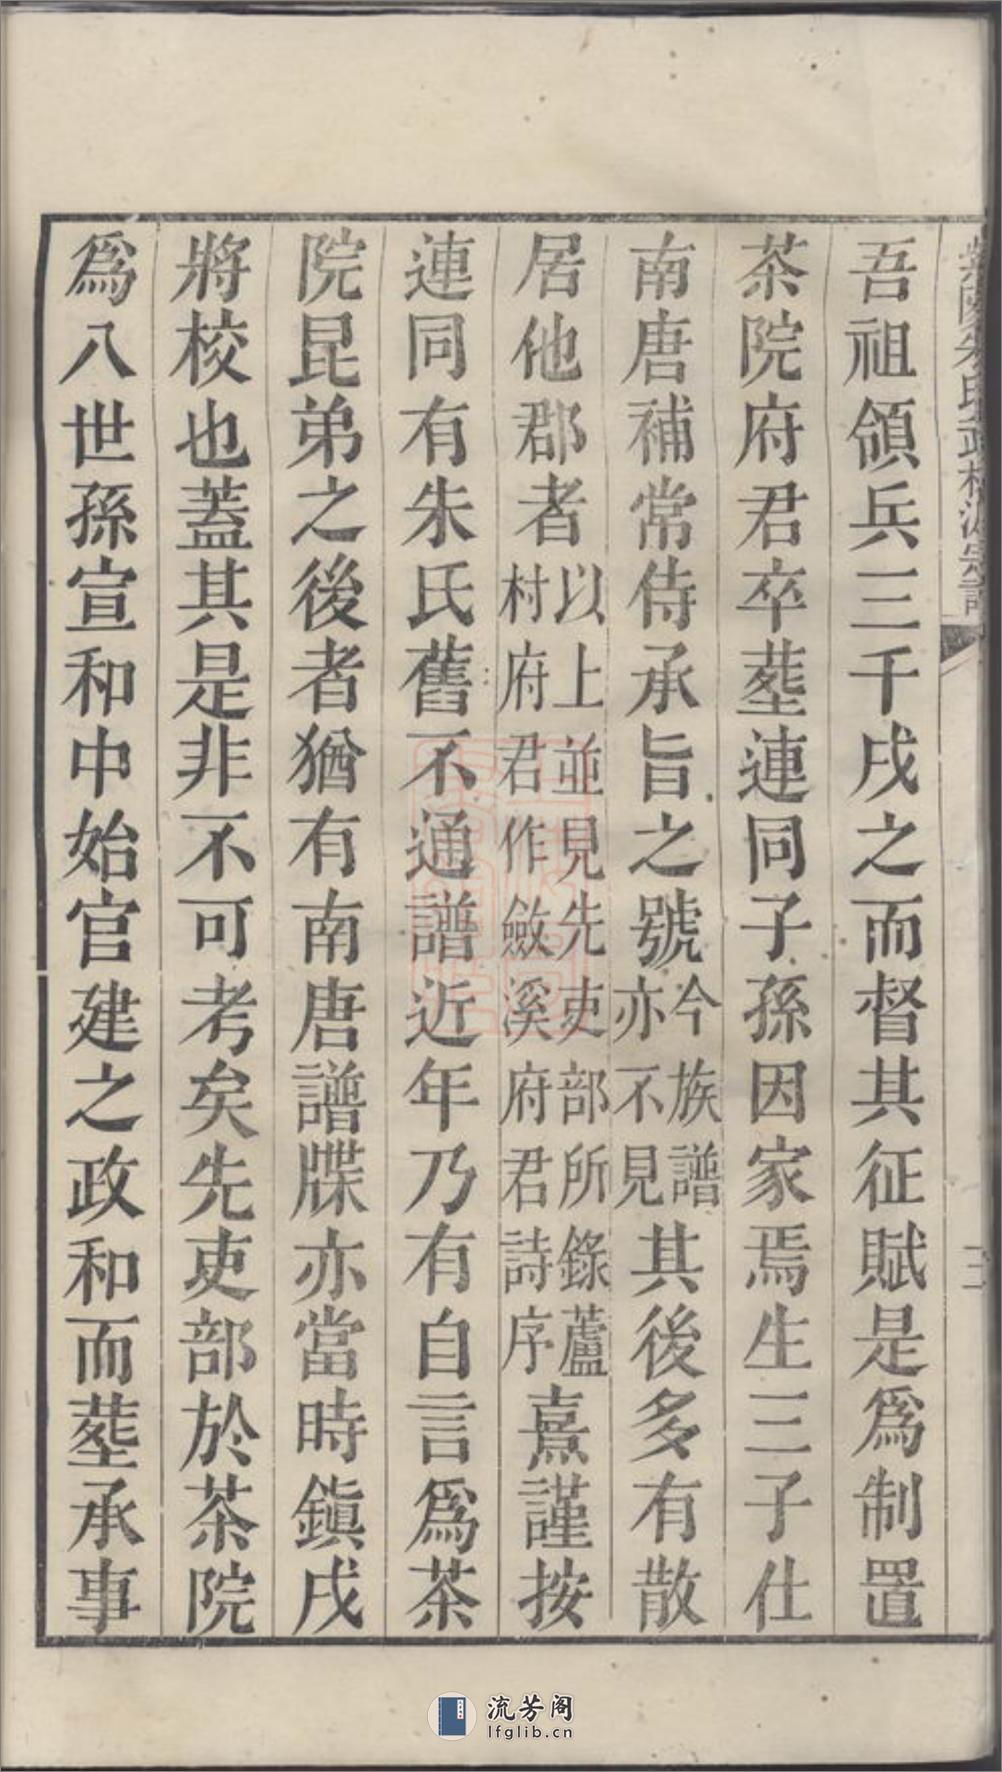 吾祖領兵三千戍之而督其征賦是爲制置
茶院府君卒塟連同子孫因家焉生三子仕
南唐補常侍承旨之號今族譜亦不見其後多有散
居他郡者以上並見先吏部所錄蘆村府君作歙溪府君詩序熹謹按
連同有朱氏舊不通譜近年乃有自言爲茶
院昆弟之後者猶有南唐譜牒亦當時鎭戍
將校也蓋其是非不可考矣先吏部於茶院
爲八世孫宣和中始官建之政和而塟承事
流芳阁
lfglib.cn